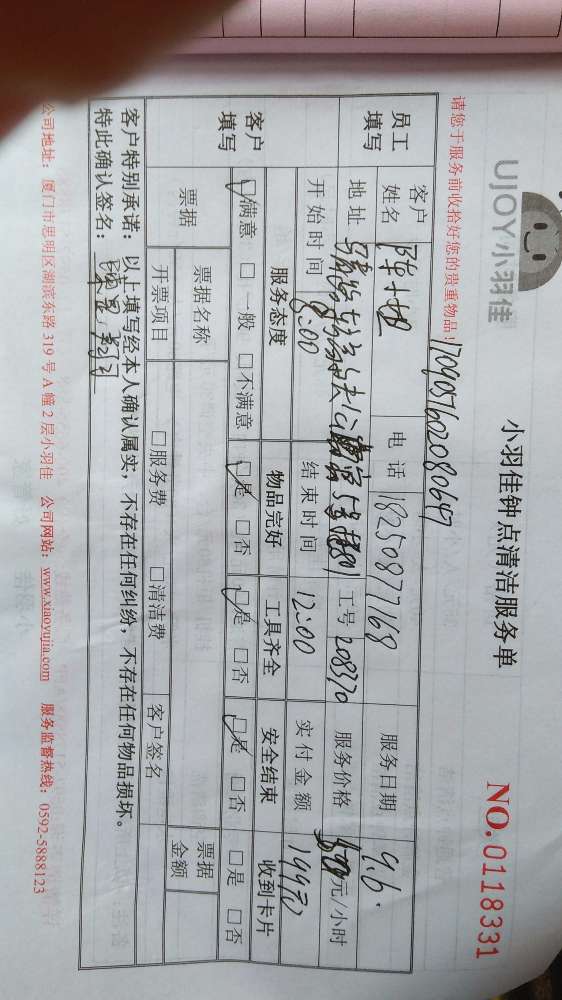 UJOY小羽佳
小羽佳钟点清洁服务单
NO.0118331
请您于服务前收拾好您的贵重物品！
1709057602080647
员工填写
客户姓名 陈小姐 电话 18250877168 服务日期 9.6.
地址 工号 208370 服务价格 元/小时
开始时间 8:00 结束时间 12:00 实付金额 199元
客户填写
服务态度 物品完好 工具齐全 安全结束 收到卡片
☑满意 □一般 □不满意 ☑是 □否 ☑是 □否 ☑是 □否 □是 □否
票据 票据名称 客户签名 票据金额
开票项目 □服务费 □清洁费
客户特别承诺：以上填写经本人确认属实，不存在任何纠纷，不存在任何物品损坏。
特此确认签名：
公司地址：厦门市思明区湖滨东路 319 号 A 幢 2 层小羽佳 公司网站：www.xiaoyujia.com 服务监督热线：0592-5888123